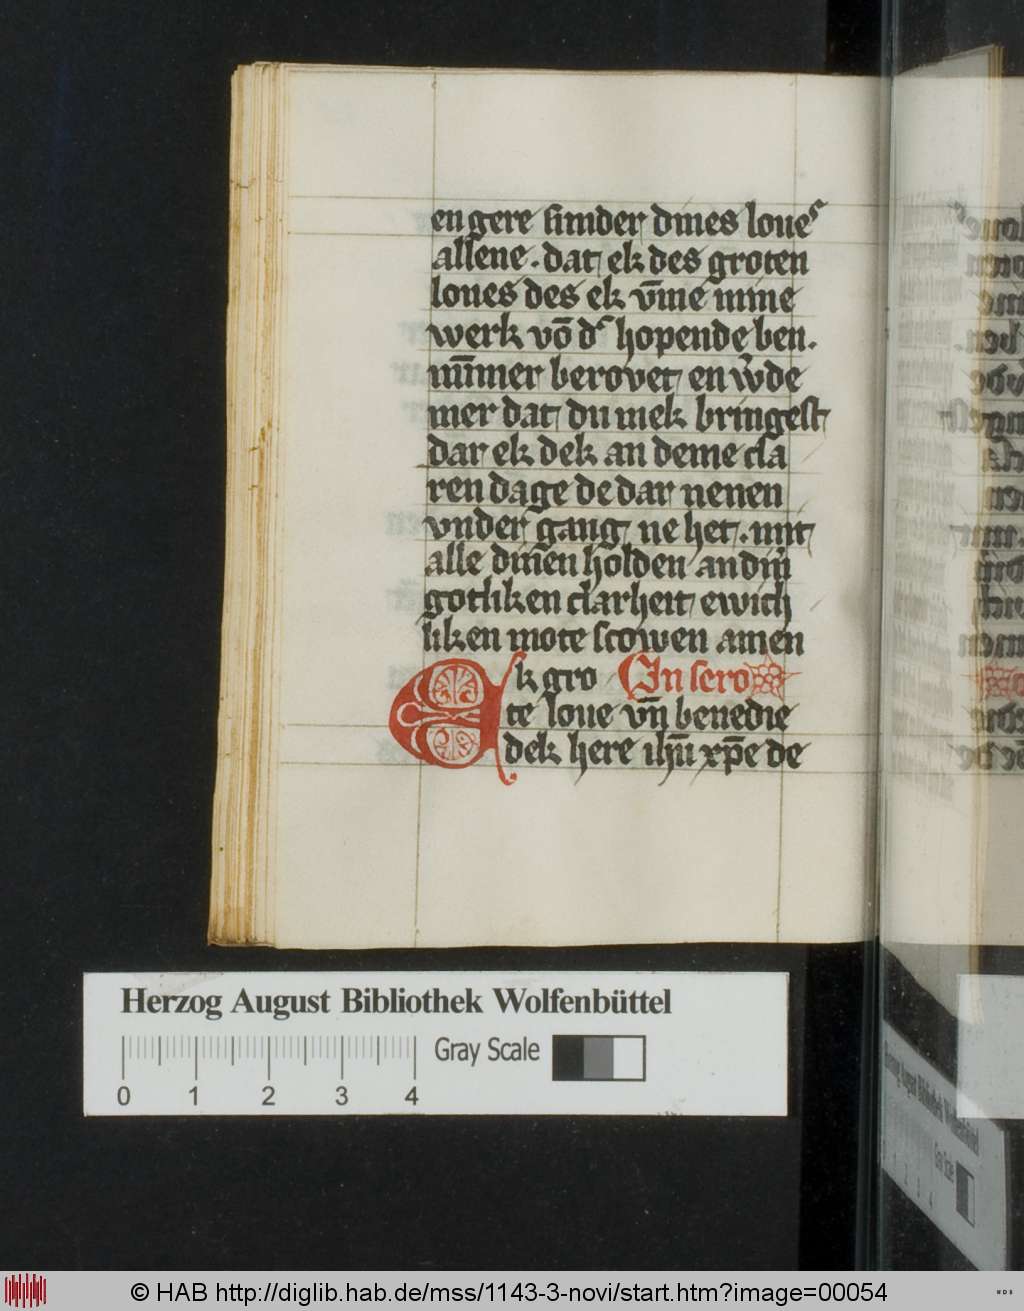 en gere sunder dines loueˢ
allene . dat ek des groten
loues des ek v̄me mine
werk vō dˢ hopende ben .
nūmer berovet en wͤde
mer dat du mek bringest
dar ek dek an deme cla
ren dage de dar nenen
vnder gang ne het . mit
alle dinen holden an din
gotliken clarheit ewich
liken mote scowen amen
Ek gro In sero
te loue vn̄ benedie
dek here ihū xp̄e de
Herzog August Bibliothek Wolfenbüttel
Gray Scale
0 1 2 3 4
© HAB http://diglib.hab.de/mss/1143-3-novi/start.htm?image=00054